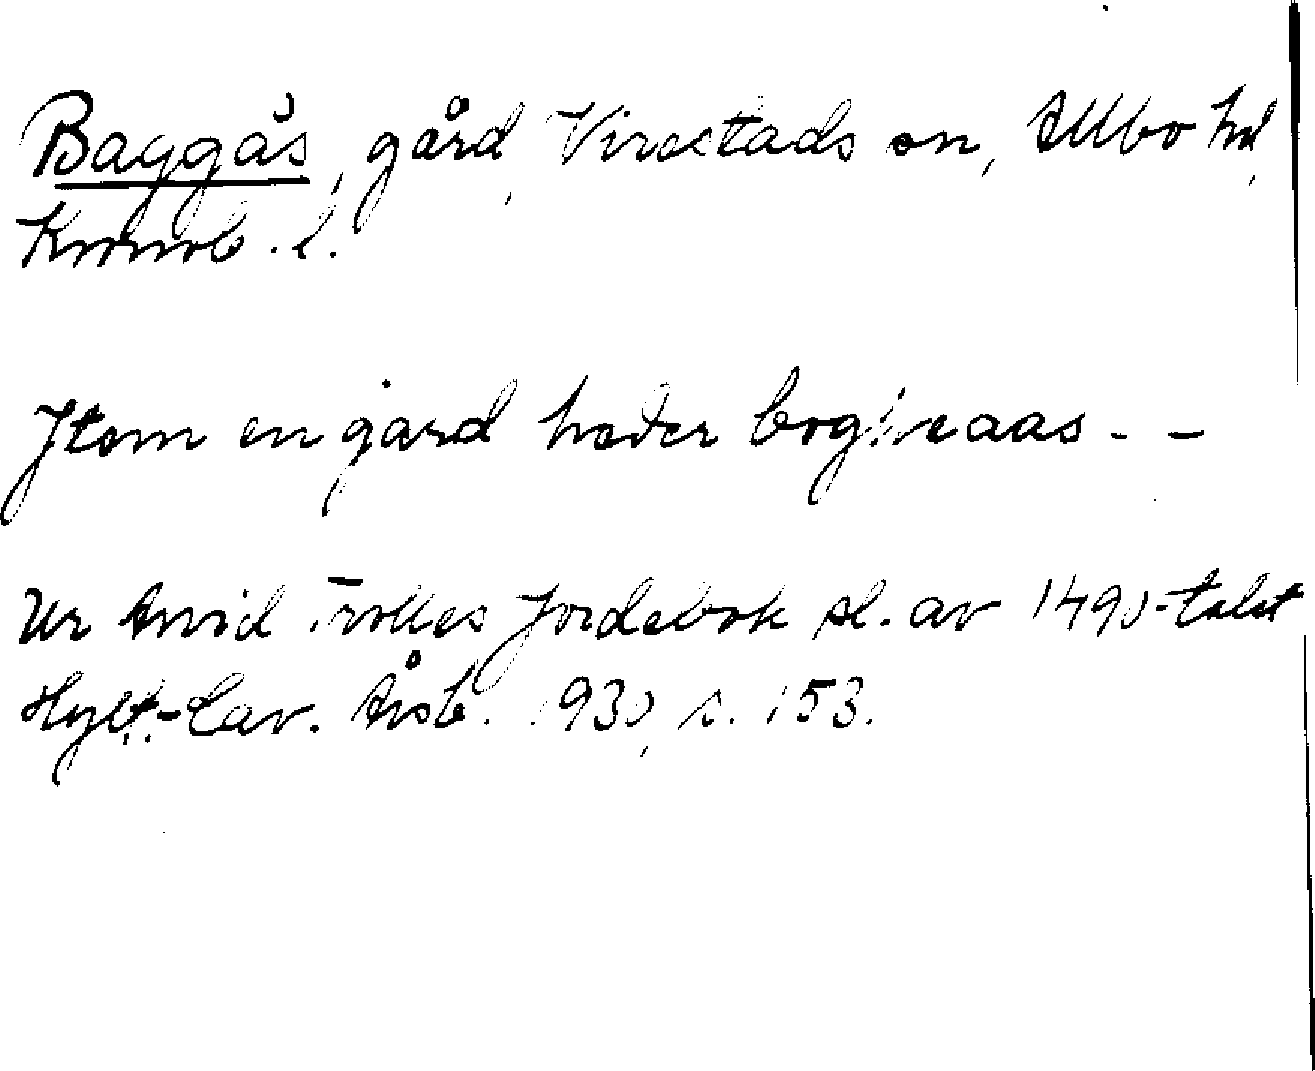 Baggås, gård, Virestads sn, Allbo hd,
Kronob. l.
Item en gård heder bogheaas - -
Ur Arvid Trolles Jordebok sl. av 1490-talet
Hylt.-Cav. Årsb. 1930, s. 153.